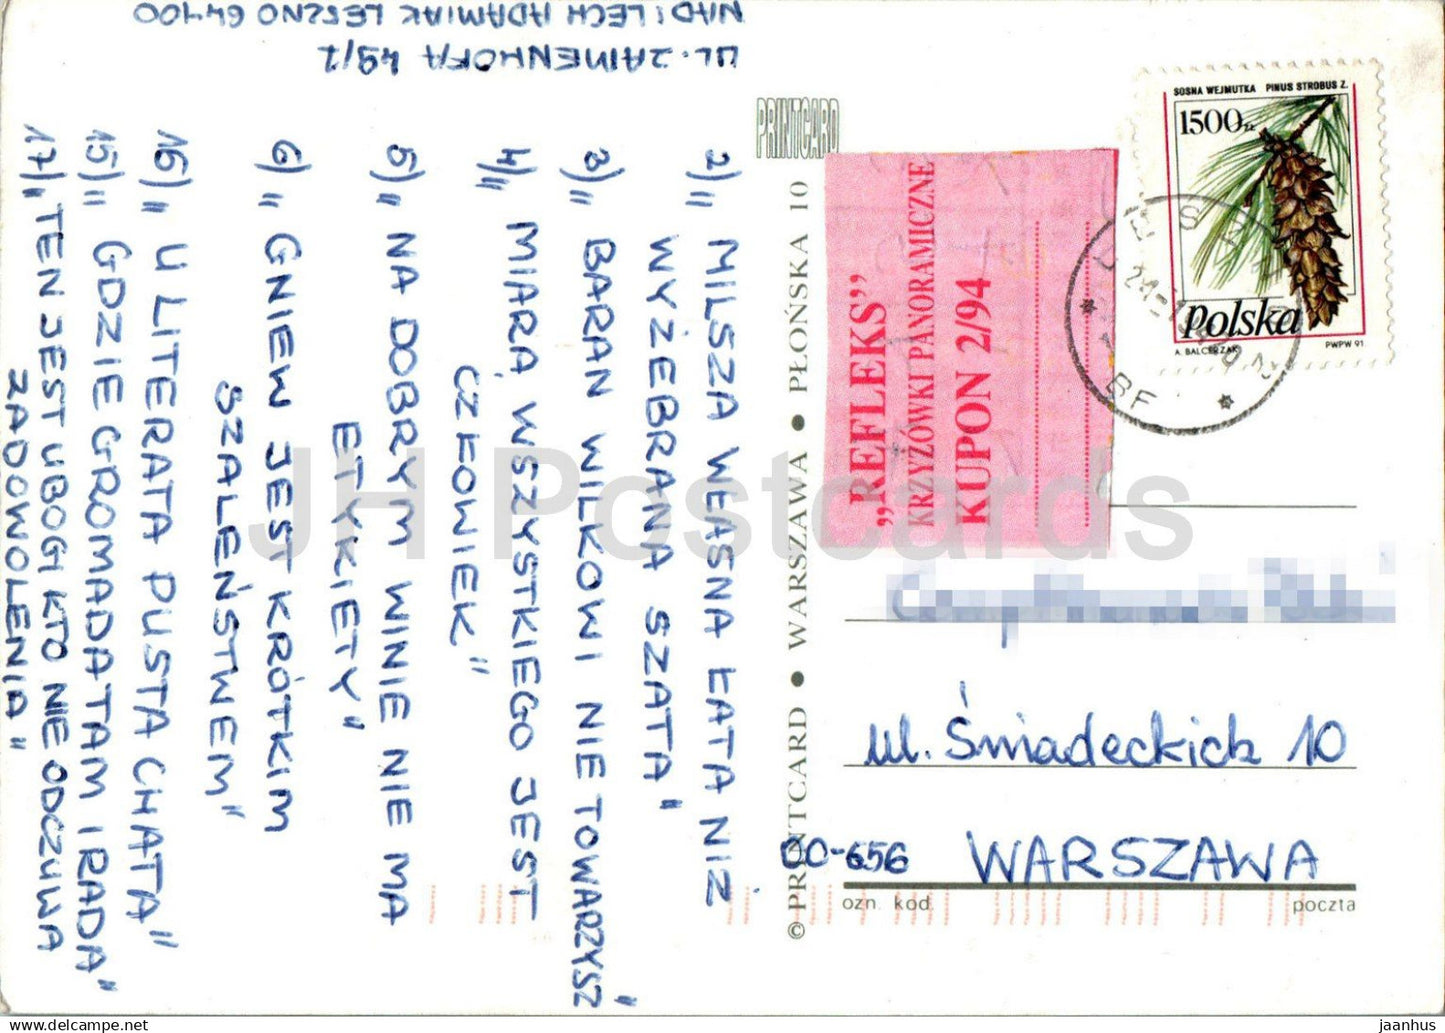 NAD: LECH ADAMIAK LESZNO 64400
UL. ZAMENHOFA 49/2
2) „MILSZA WŁASNA ŁATA NIŻ
WYŻEBRANA SZATA"
3) „BARAN WILKOWI NIE TOWARZYSZ"
4) „MIARĄ WSZYSTKIEGO JEST
CZŁOWIEK"
5) „NA DOBRYM WINIE NIE MA
ETYKIETY"
6) „GNIEW JEST KRÓTKIM
SZALEŃSTWEM"
16) „U LITERATA PUSTA CHATA"
15) „GDZIE GROMADA TAM I RADA"
17) „TEN JEST UBOGI KTO NIE ODCZUWA
ZADOWOLENIA"
PRINTCARD
© PRINTCARD ● WARSZAWA ● PŁOŃSKA 10
„REFLEKS”
KRZYŻÓWKI PANORAMICZNE
KUPON 2/94
SOSNA WEJMUTKA PINUS STROBUS Z.
1500 zł
Polska
A. BALCERZAK PWPW 91
BF
ul. Śniadeckich 10
00-656 WARSZAWA
ozn. kod. poczta
JH Postcards
jaanhus